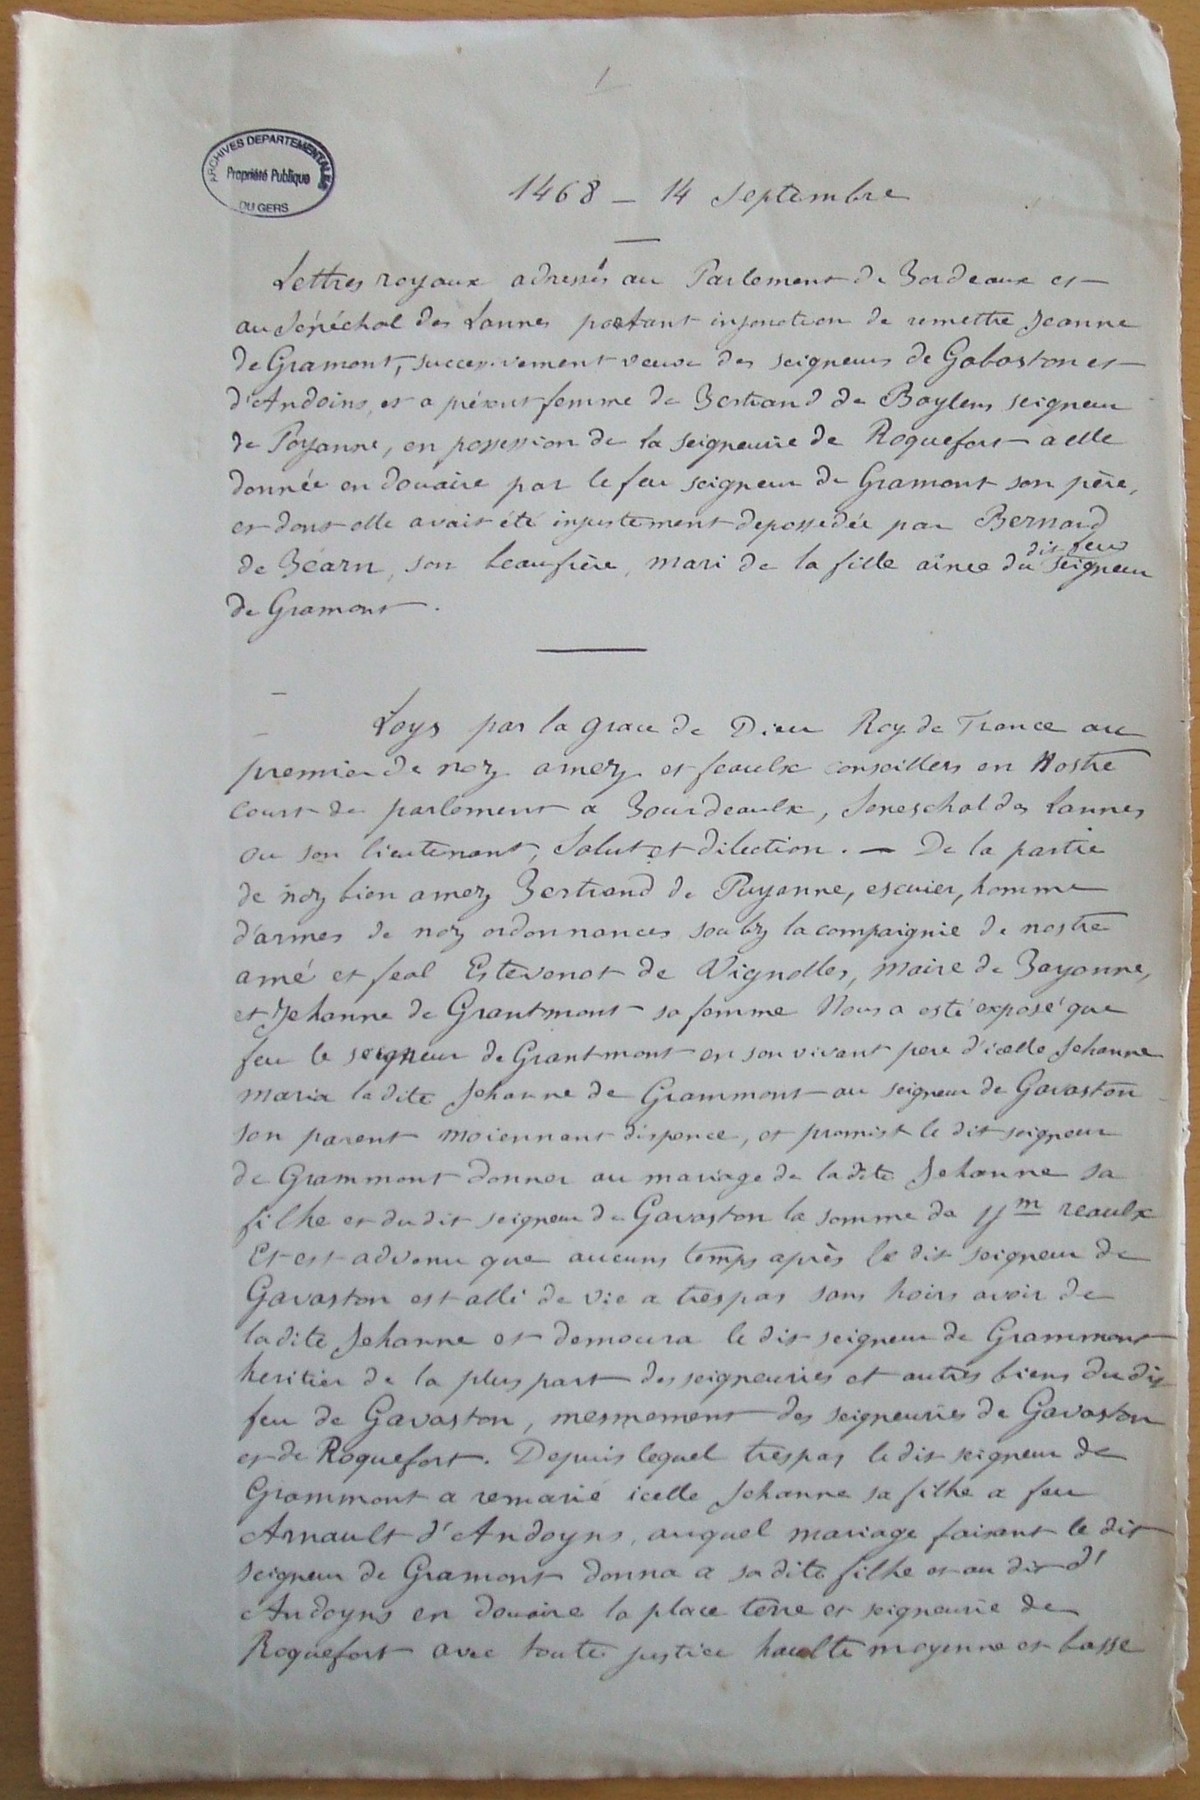 1
ARCHIVES DEPARTEMENTALES
Propriété Publique
DU GERS
1468 — 14 Septembre
Lettres royaux adressés au Parlement de Bordeaux et
au Sénéchal des Lannes portant injonction de remettre Jeanne
de Gramont, successivement veuve des seigneurs de Gabaston et
d'Andoins, et a présent femme de Bertrand de Baylens seigneur
de Poyanne, en possession de la seigneurie de Roquefort à elle
donnée en douaire par le feu seigneur de Gramont son père,
et dont elle avait été injustement depossedée par Bernard
de Béarn, son beaufrère, mari de la fille aînée du dit feu seigneur
de Gramont.
Loys par la grace de Dieu Roy de France au
premier de noz amez et feaulx conseillers en Nostre
Court de parlement a Bourdeaulx, Seneschal des Lannes
ou son lieutenant, Salut et dilection. — De la partie
de noz bien amez Bertrand de Puyanne, escuier, homme
d'armes de noz ordonnances soubz la compaignie de nostre
amé et feal Estevenot de Vignolles, maire de Bayonne,
et Jehanne de Grantmont sa femme Nous a esté exposé que
feu le seigneur de Grantmont en son vivant pere d'icelle Jehanne
maria ladite Jehanne de Grammont au seigneur de Gavaston
son parent moiennant dispence, et promist le dit seigneur
de Grammont donner au mariage de ladite Jehanne sa
filhe et dudit seigneur de Gavaston la somme de ijm reaulx
Et est advenu que aucuns temps après le dit seigneur de
Gavaston est allé de vie a trespas sans hoirs avoir de
ladite Jehanne et demoura le dit seigneur de Grammont
heritier de la plus part des seigneuries et autres biens du dit
feu de Gavaston, mesmement des seigneuries de Gavaston
et de Roquefort. Depuis lequel trespas le dit seigneur de
Grammont a remarié icelle Jehanne sa filhe a feu
Arnault d'Andoyns, auquel mariage faisant le dit
seigneur de Gramont donna a sa dite filhe et au dit d'
Andoyns en douaire la place terre et seigneurie de
Roquefort avec toute justice haulte moyenne et basse